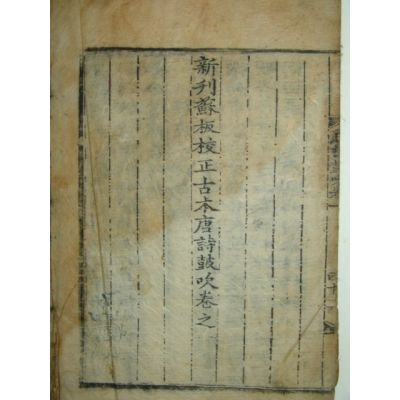 新刋蘇板校正古本唐詩鼓吹卷之